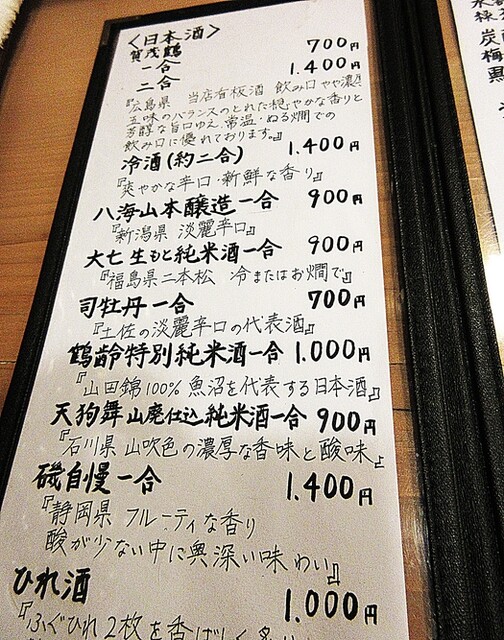 〈日本酒〉
賀茂鶴
一合 700円
二合 1.400円
『広島県 当店看板酒 飲み口やや濃厚
五味のバランスのとれた穏やかな香りと
芳醇な旨口ゆえ、常温・ぬる燗での
飲み口に優れております。』
冷酒(約二合) 1.400円
『爽やかな辛口・新鮮な香り』
八海山本醸造一合 900円
『新潟県 淡麗辛口』
大七 生もと純米酒一合 900円
『福島県二本松 冷またはお燗で』
司牡丹一合 700円
『土佐の淡麗辛口の代表酒』
鶴齢特別純米酒一合 1.000円
『山田錦100% 魚沼を代表する日本酒』
天狗舞山廃仕込純米酒一合 900円
『石川県 山吹色の濃厚な香味と酸味』
磯自慢一合 1.400円
『静岡県 フルーティな香り
酸が少ない中に奥深い味わい』
ひれ酒 1.000円
『ふぐひれ2枚を香ばしく
炭
梅